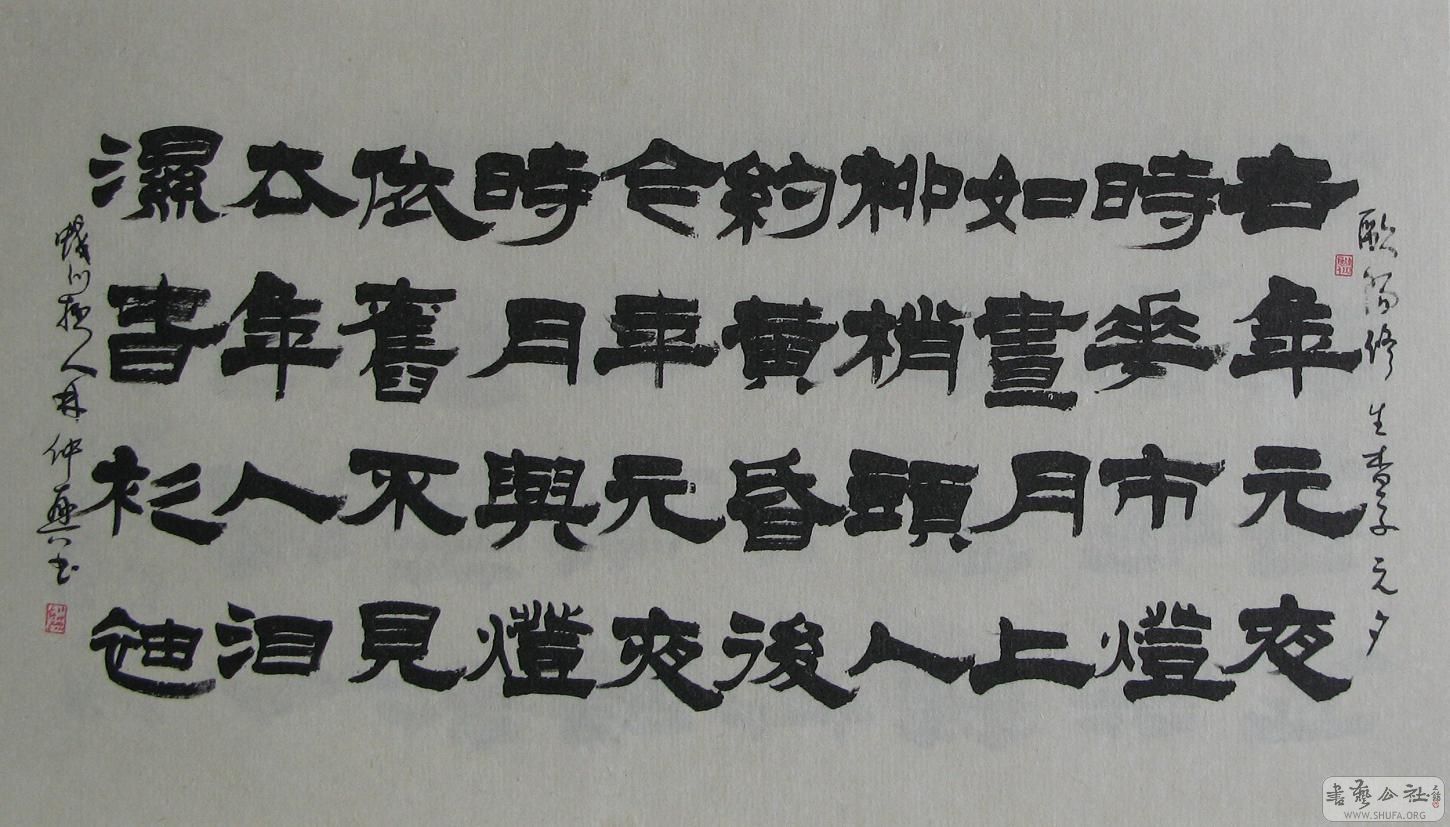 歐陽修 生查子 元夕
去年元夜
時花市燈
如晝月上
柳梢頭人
約黃昏後
今年元夜
時月與燈
依舊不見
去年人泪
濕春衫袖
人林仲興书
書藝公社
WWW.SHUFA.ORG